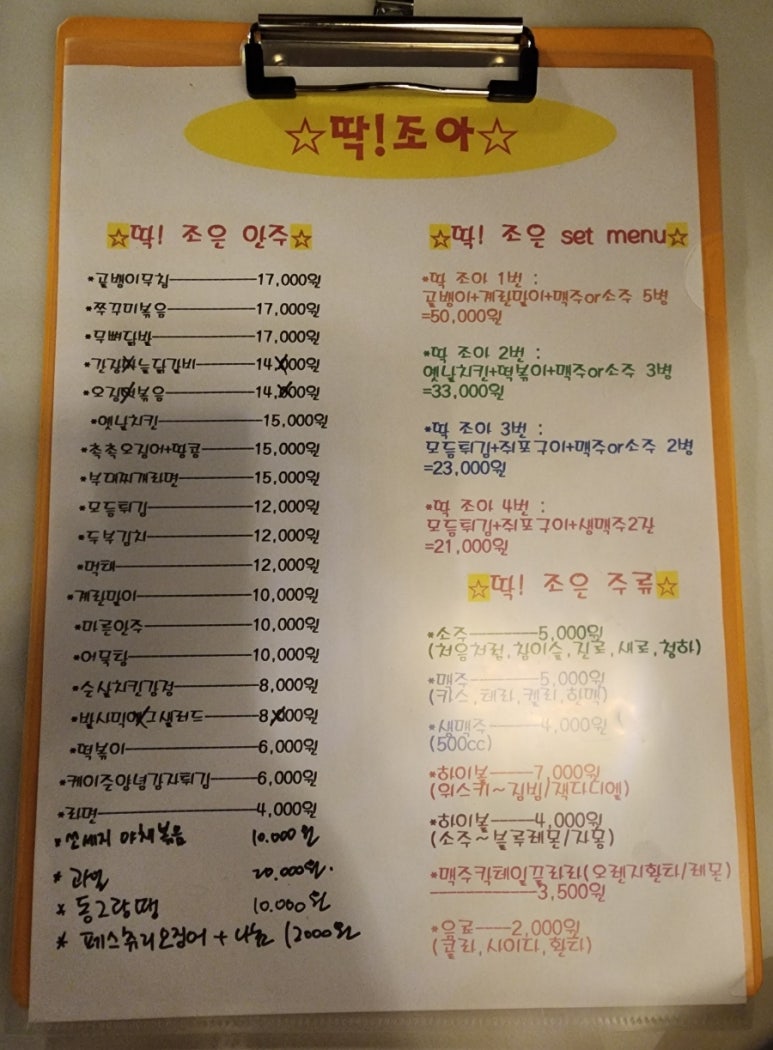 ☆딱!조아☆
☆딱! 조은 안주☆
*골뱅이무침 17,000원
*쭈꾸미볶음 17,000원
*무뼈닭발 17,000원
*간장마늘닭갈비 14,000원
*오징어볶음 14,000원
*옛날치킨 15,000원
*촉촉오징어+땅콩 15,000원
*부대찌개라면 15,000원
*모듬튀김 12,000원
*두부김치 12,000원
*먹태 12,000원
*계란말이 10,000원
*마른안주 10,000원
*어묵탕 10,000원
*순살치킨강정 8,000원
*발사믹에그샐러드 8,000원
*떡볶이 6,000원
*케이준양념감자튀김 6,000원
*라면 4,000원
*쏘세지 야채볶음 10.000원
*과일 20.000원.
*동그랑땡 10.000원
*페스츄리오징어+나쵸 12000원
☆딱! 조은 set menu☆
*딱 조아 1번 :
골뱅이+계란말이+맥주or소주 5병
=50,000원
*딱 조아 2번 :
옛날치킨+떡볶이+맥주or소주 3병
=33,000원
*딱 조아 3번 :
모듬튀김+쥐포구이+맥주or소주 2병
=23,000원
*딱 조아 4번 :
모듬튀김+쥐포구이+생맥주2잔
=21,000원
☆딱! 조은 주류☆
*소주 5,000원
(처음처럼,참이슬,진로,새로,청하)
*맥주 5,000원
(카스,테라,켈리,한맥)
*생맥주 4,000원
(500cc)
*하이볼 7,000원
(위스키~짐빔/잭다니엘)
*하이볼 4,000원
(소주~블루레몬/자몽)
*맥주칵테일끌라라(오렌지환타/레몬)
3,500원
*음료 2,000원
(콜라,사이다,환타)